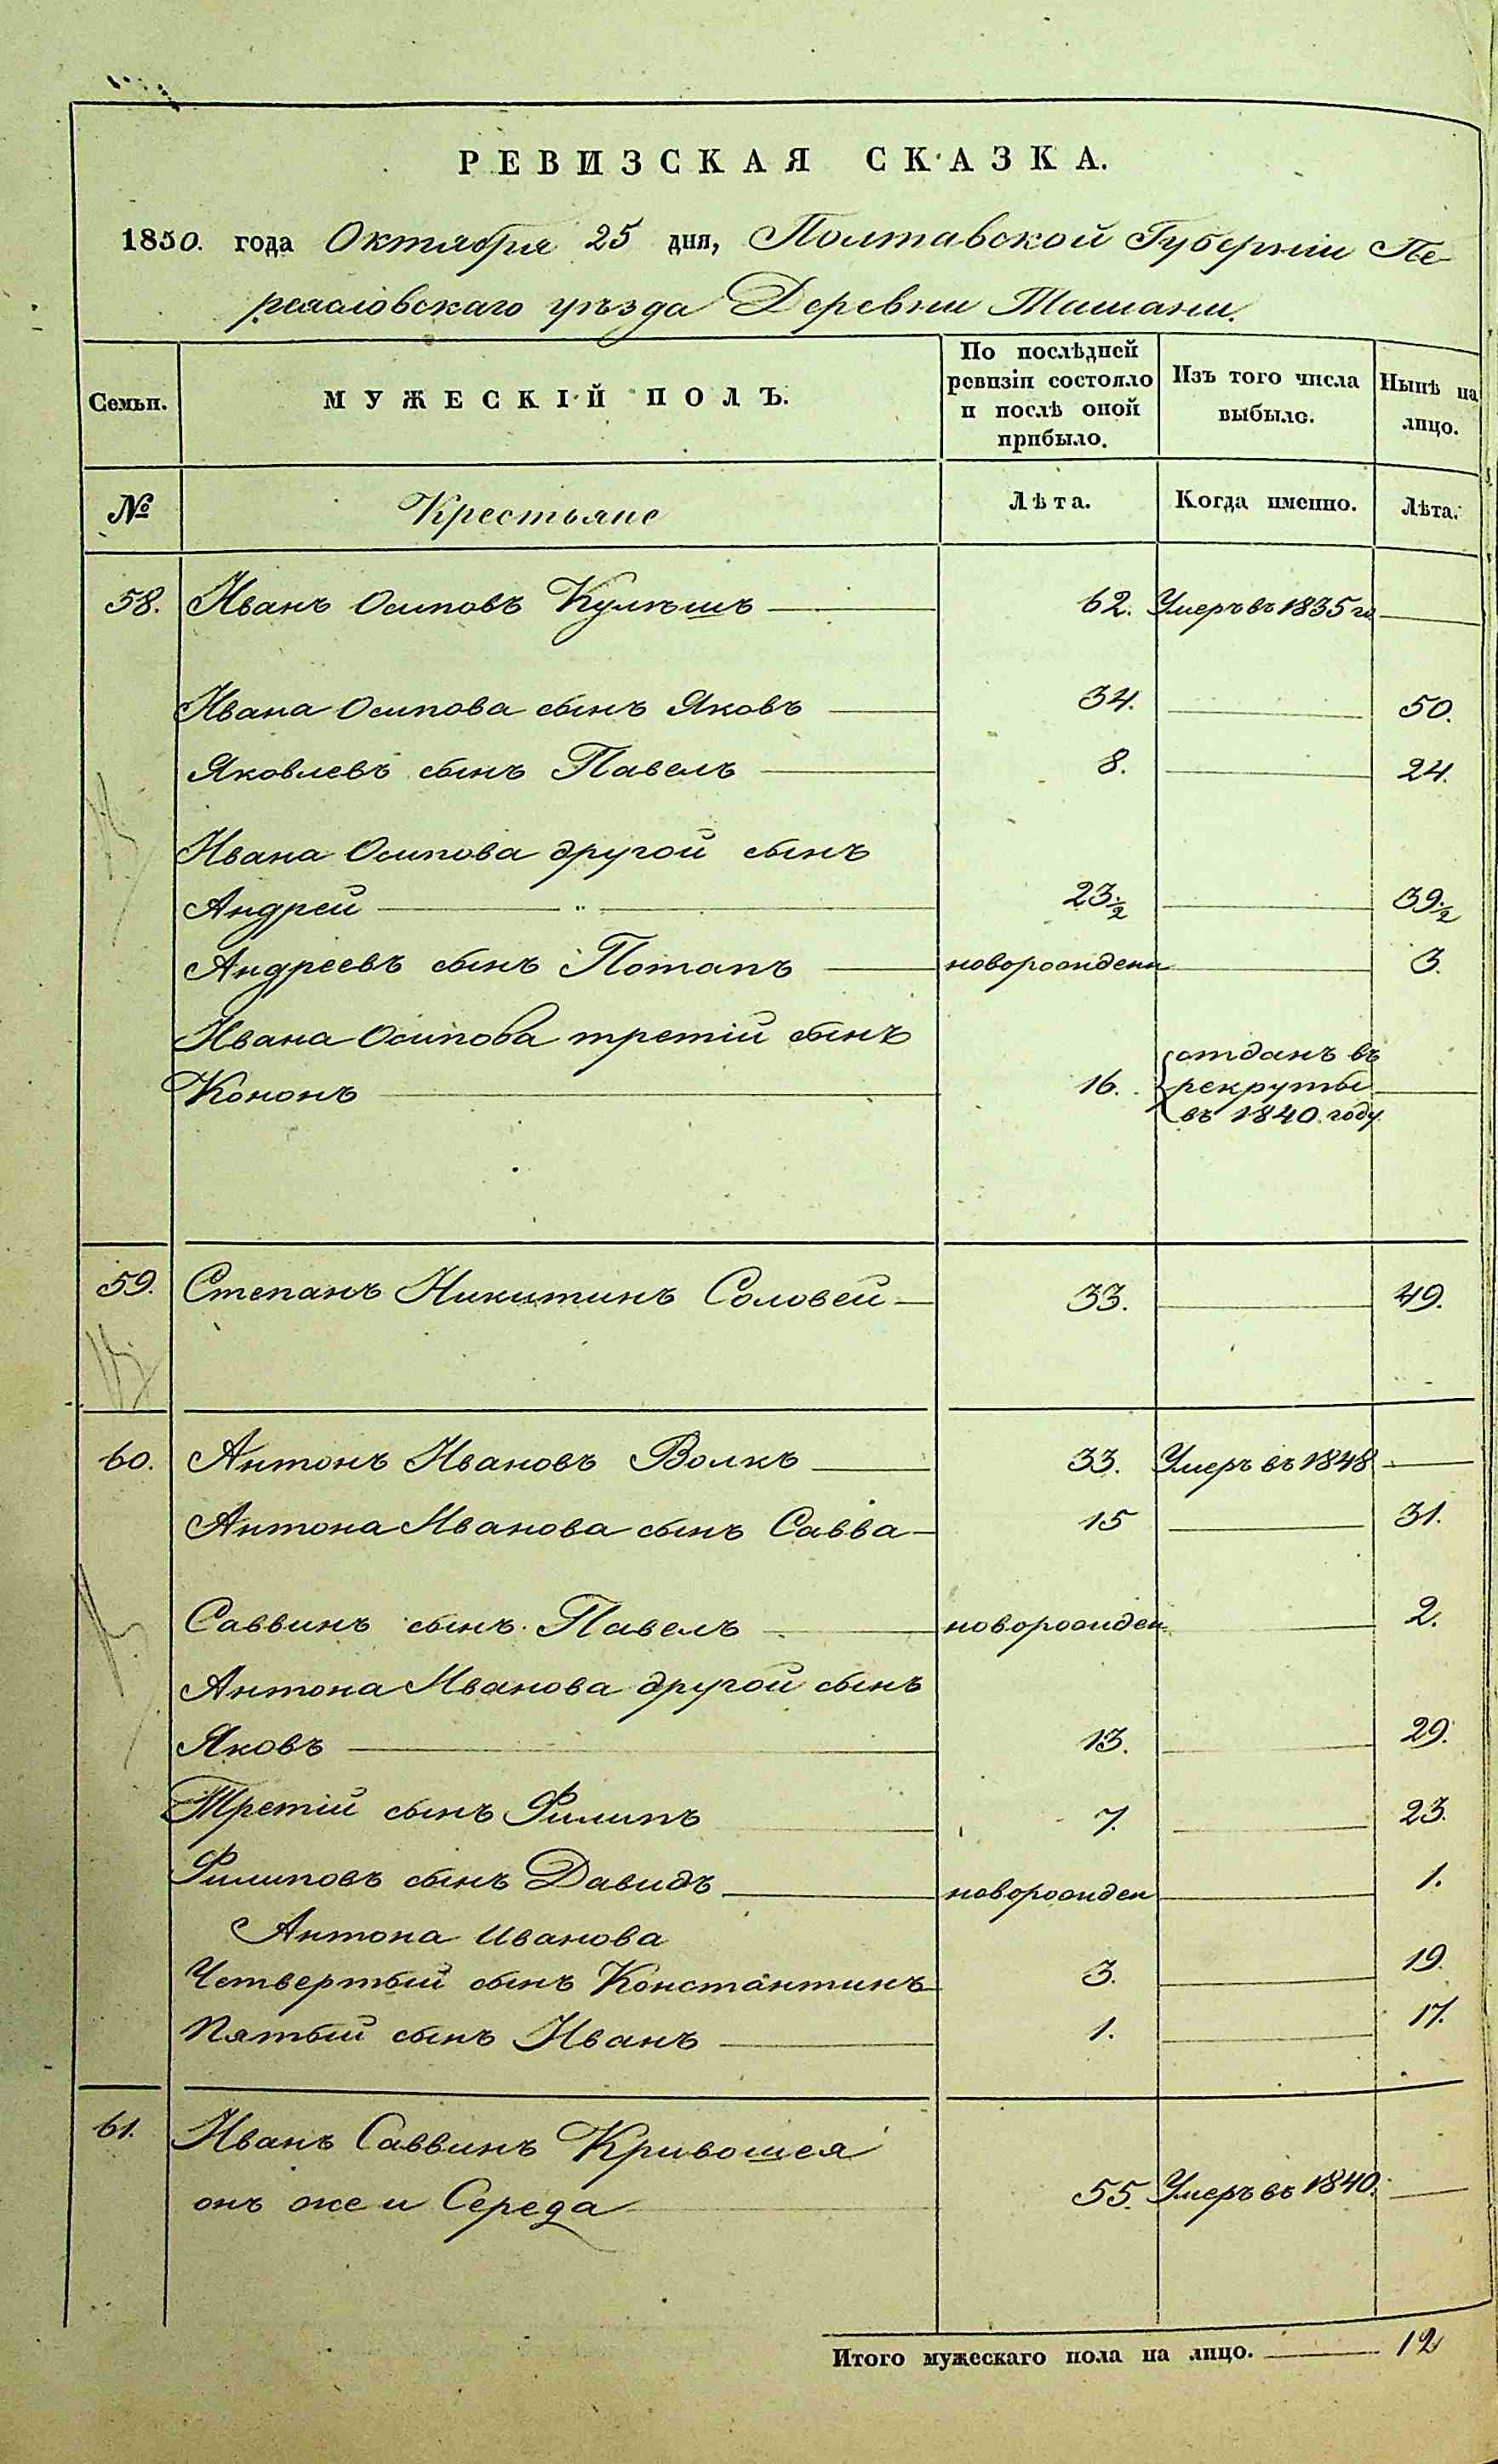 РЕВИЗСКАЯ СКАЗКА.
1850. года Октября 25 дня, Полтавской Губерніи Пе-
реяаловскаго уѣзда Деревни Ташани.
Семьи. МУЖЕСКІЙ ПОЛЪ. По послѣдней ревизіи состояло и послѣ оной прибыло. Изъ того числа выбыло. Нынѣ на лицо.
№ Крестьяне Лѣта. Когда именно. Лѣта.
58. Иванъ Осиповъ Кулѣшъ 62. Умеръ въ 1835 го
Ивана Осипова сынъ Яковъ 34. 50.
Яковлевъ сынъ Павелъ 8. 24.
Ивана Осипова другой сынъ
Андрей 23½ 39½
Андреевъ сынъ Потапъ новорожденн 3.
Ивана Осипова третій сынъ
Кононъ 16. отданъ въ рекруты въ 1840 году
59. Степанъ Никитинъ Соловей 33. 49.
60. Антонъ Ивановъ Волкъ 33. Умеръ въ 1848
Антона Иванова сынъ Савва 15 31.
Саввинъ сынъ Павелъ новорожден 2.
Антона Иванова другой сынъ
Яковъ 13. 29.
Третій сынъ Филипъ 7. 23.
Филиповъ сынъ Давидъ новорожден 1.
Антона Иванова
Четвертый сынъ Константинъ 3. 19.
Пятый сынъ Иванъ 1. 17.
61. Иванъ Саввинъ Кривошея
онъ же и Середа 55. Умеръ въ 1840.
Итого мужескаго пола на лицо. 12